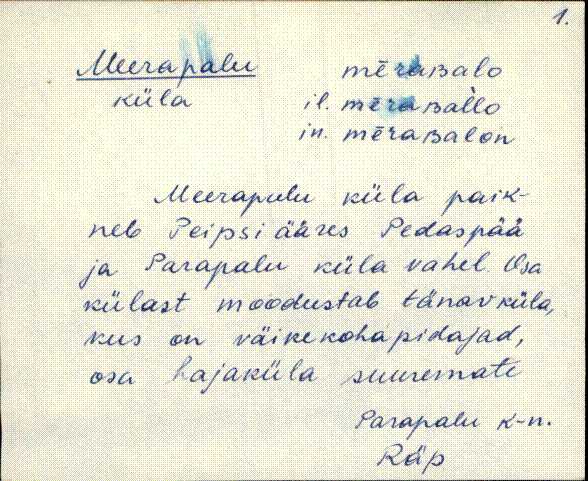 1.
Meerapalu mēraʙalo
küla il. mēraʙàllo
in. mēraʙalon
Meerapalu küla paik-
neb Peipsi ääres Pedaspää
ja Parapalu küla vahel. Osa
külast moodustab tänavküla,
kus on väikekohapidajad,
osa hajaküla suuremate
Parapalu k-n.
Räp